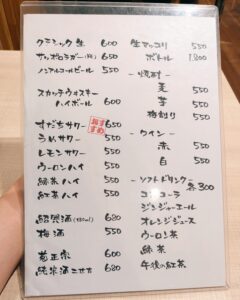 クラシック 生 600
サッポロラガー(中) 650
ノンアルコールビール 550
スカッチウィスキー
ハイボール 600
すだちサワー おすすめ 650
うめサワー 550
レモンサワー 550
ウーロンハイ 550
緑茶ハイ 550
紅茶ハイ 550
紹興酒(180ml) 680
梅酒 550
菊正宗 600
純米酒 680
生マッコリ 550
ボトル 1,800
-焼酎-
麦 550
芋 550
梅割り 550
-ワイン-
赤 550
白 550
-ソフトドリンク-
各300
コカコーラ
ジンジャーエール
オレンジジュース
ウーロン茶
緑茶
午後の紅茶